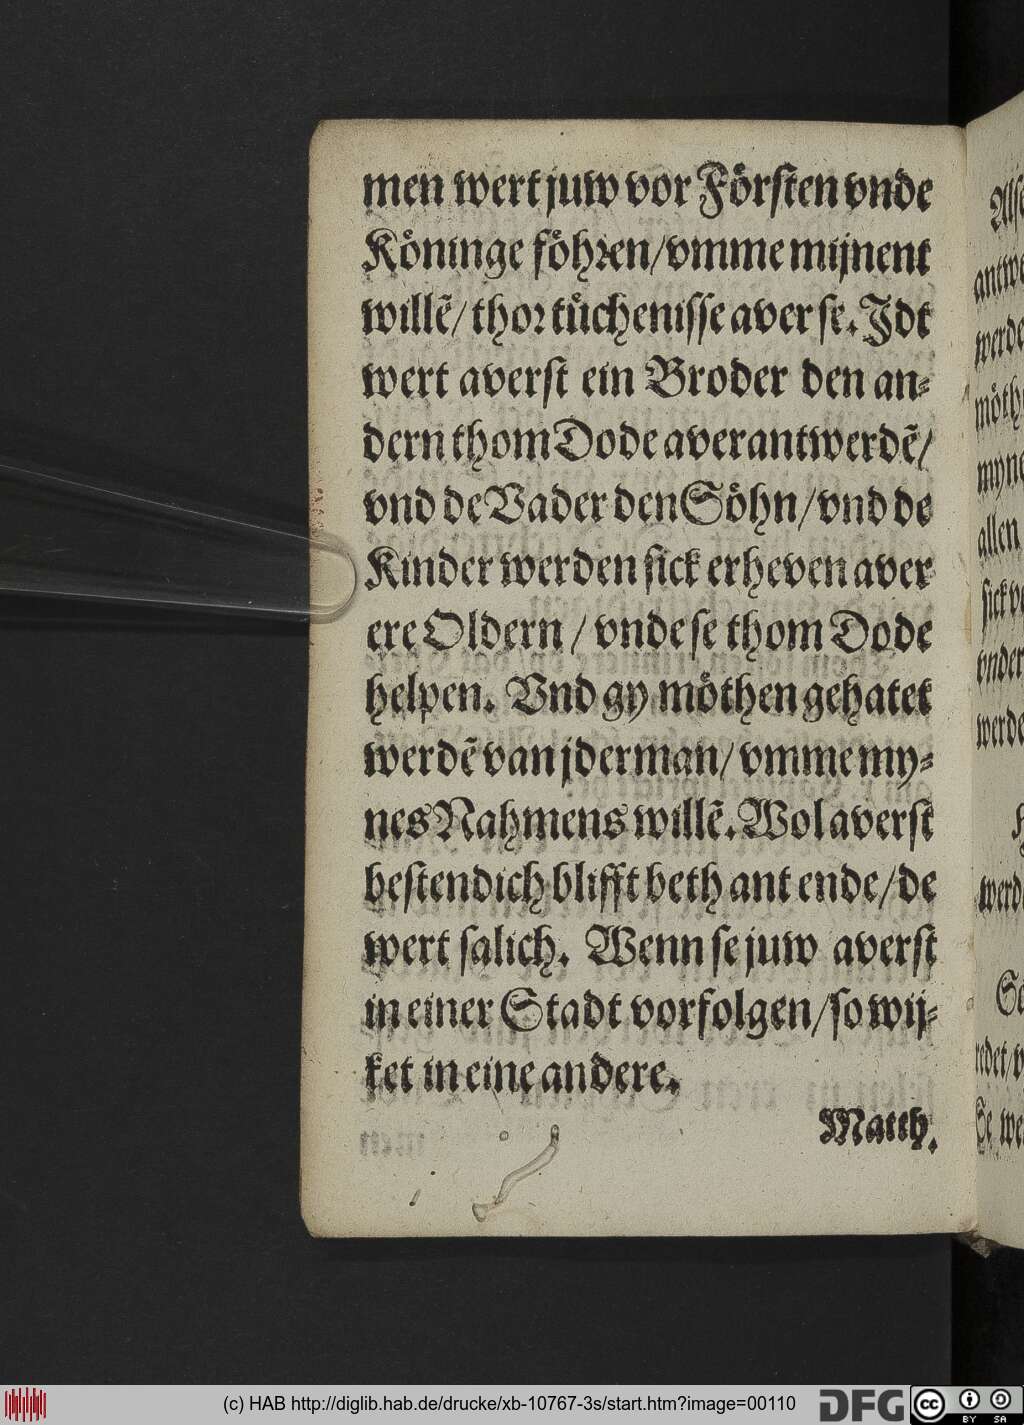 men wert juw vor Foͤrſten vnde
Koͤninge foͤhꝛen/ vmme mijnent
willẽ/ thoꝛ tuͤcheniſſe aver ſe. Jdt
wert averſt ein Broder den an⸗
dern thom Dode averantwerdẽ/
vnd de Vader den Soͤhn/ vnd de
Kinder werden ſick erheven aver
ere Oldern/ vnde ſe thom Dode
helpen. Vnd gy moͤthen gehatet
werdẽ van jderman/ vmme my⸗
nes Nahmens willẽ. Wol averſt
beſtendich blifft beth ant ende/ de
wert ſalich. Wenn ſe juw averſt
in einer Stadt vorfolgen/ ſo wij⸗
ket in eine andere.
Matth.
Alſ
antwe
werde
moͤth
myne
allen
ſick v
vnder
werde
werd
Se
redet/ v
Se we
(c) HAB http://diglib.hab.de/drucke/xb-10767-3s/start.htm?image=00110
DFG
cc BY SA